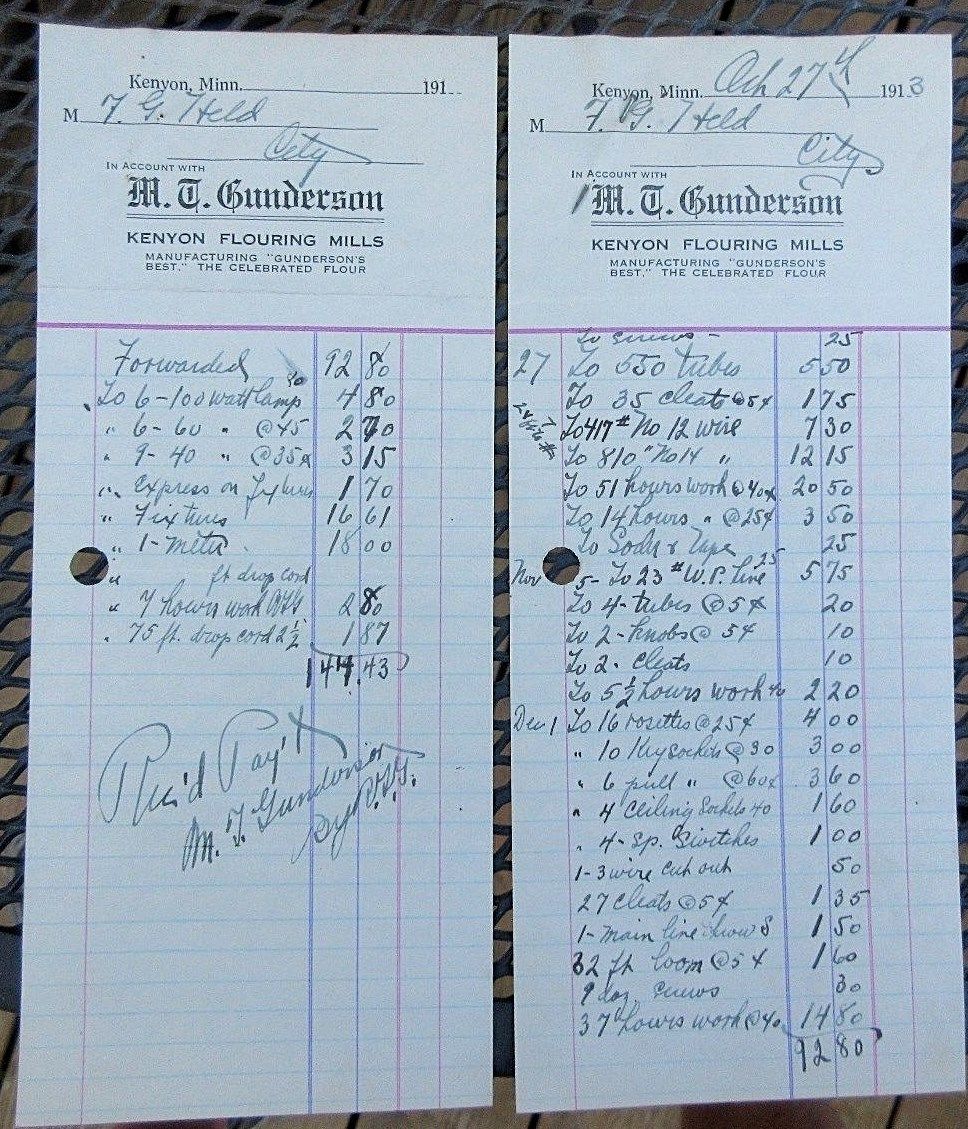 Kenyon, Minn. 191
M F. G. Held
City
IN ACCOUNT WITH
M. T. Gunderson
KENYON FLOURING MILLS
MANUFACTURING "GUNDERSON'S
BEST." THE CELEBRATED FLOUR
Forwarded 92 80
To 6-100 watt lamp 4 80
" 6-60 " @45 2 70
" 9-40 " @35¢ 3 15
" Express on 1 70
" Fixtures 16 61
" 1-Meter 18 00
" ft drop cord
" 7 hours work 2 80
" 75 ft. drop cord 2½ 1 87
144.43
Rec'd Pay't
M. T. Gunderson
By
Kenyon, Minn. Oct 27 1913
M F. G. Held
City
IN ACCOUNT WITH
M. T. Gunderson
KENYON FLOURING MILLS
MANUFACTURING "GUNDERSON'S
BEST." THE CELEBRATED FLOUR
To screws - 25
27 To 550 tubes 5 50
To 35 cleats @5¢ 1 75
To 417# No 12 wire 7 30
To 810 " No 14 " 12 15
To 51 hours work @40¢ 20 50
To 14 hours " @25¢ 3 50
To Soder & Tape 25
Nov 5- To 23# W.P. Line 25 5 75
To 4-tubes @5¢ 20
To 2-knobs @ 5¢ 10
To 2-cleats 10
To 5½ hours work 40 2 20
Dec 1 To 16 rosettes @25¢ 4 00
" 10 Key sockets @30 3 00
" 6 pull " @60¢ 3 60
" 4 Ceiling Sockets 40 1 60
" 4-Sp. Switches 1 00
1-3 wire cut out 50
27 Cleats @5¢ 1 35
1-main line 1 50
32 ft loom @5¢ 1 60
9 doz screws 30
37 hours work @40 14 80
92 80